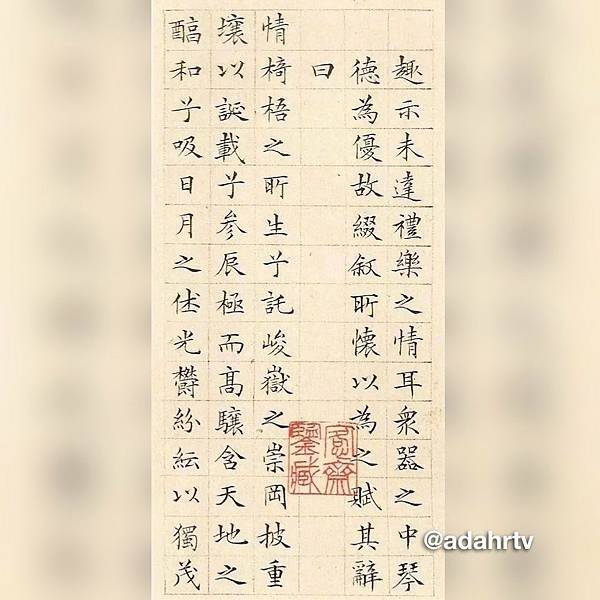 趣示未達禮樂之情耳衆器之中琴
德為優故綴叙所懷以為之賦其辭
曰
情椅梧之所生兮託峻嶽之崇岡披重
壤以誕載兮參辰極而髙驤含天地之
醕和兮吸日月之休光欝紛紜以獨茂
齋
鑒藏
@adahrtv